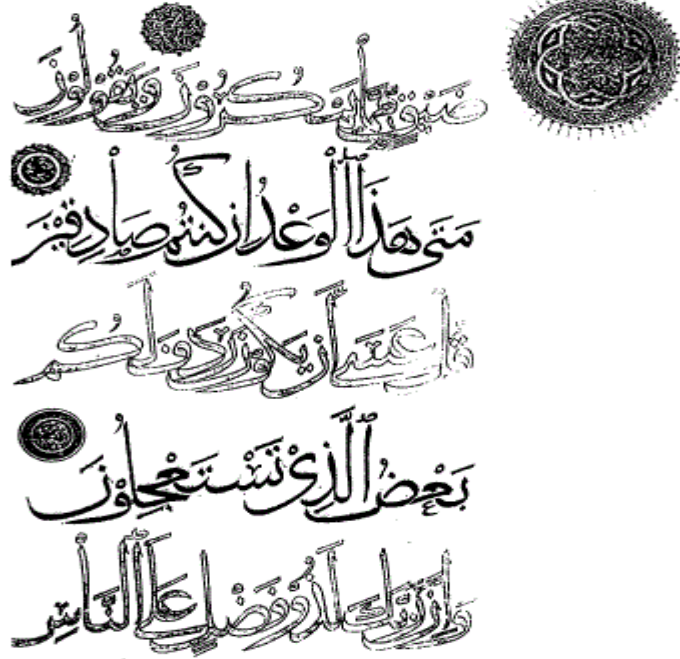 ضيق مما يمكرون ويقولون
متى هذا الوعد ان كنتم صادقين
قل عسى أن يكون ردف لكم
بعض الذي تستعجلون
وان ربك لذو فضل على الناس